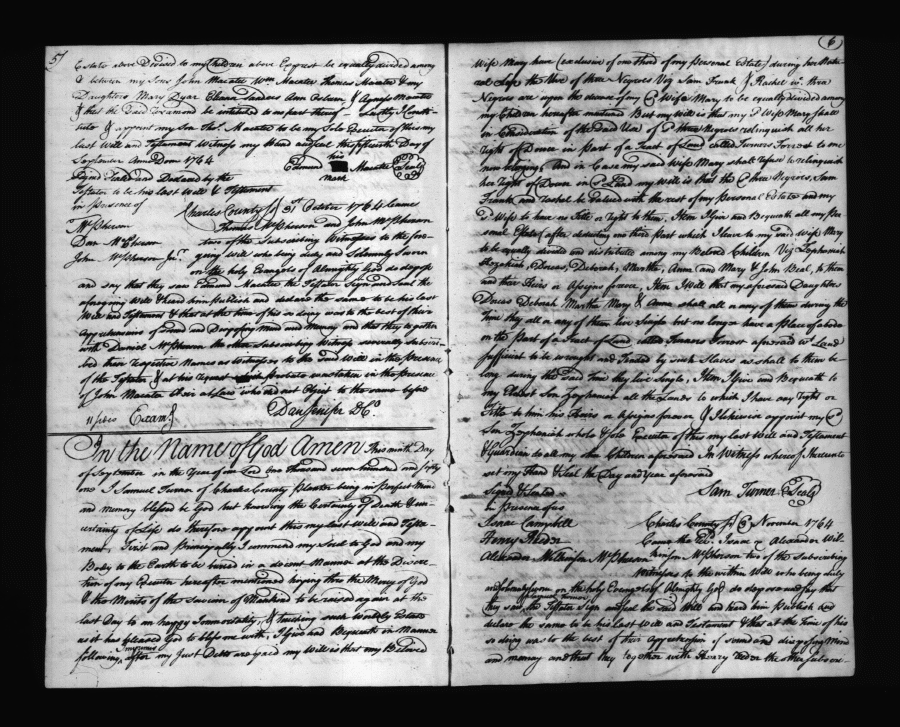 5
Estate above Devised to my Children above Exprest be equally divided among
& between my Sons John Macatee Wm. Macatee Thomas Macatee & my
Daughters Mary Dyar Elenor Ann & Agness Macatee
& that the said Diamond be intituled to no part thereof Lastly I Consti-
tute & appoint my Son Thos. Macatee to be my Sole Executor of this my
last Will and Testament Witness my Hand and Seal the fifteenth Day of
September Anno Dom 1764
his
Edmund Macatee Seal
mark
Signed Sealed and Declared by the
Testator to be his last Will & Testament
in presence of
Charles County Ss. 31st October 1764 Came
Thomas McPherson and John McPherson
two of the Subscribing Witnesses to the fore-
going Will who being duly and Solemnly Sworn
on the holy Evangels of Almighty God do depose
McPherson
Dan McPherson
John McPherson Junr.
and say that they saw Edmund Macatee the Testator Sign and Seal the
aforegoing Will & heard him Publish and declare the same to be his last
Will and Testament & that at the time of his so doing was to the best of their
apprehensions of sound and Disposing mind and Memory and that they together
with Daniel McPherson the other Subscribing Witness severally Subscri-
bed their respective Names as Witnesses to the said Will in the Presence
of the Testator & at his request which probate was taken in the presence
of John Macatee Heir at Law who did not Object to the same before
11 sides Examd.
Dan Jenifer D Co.
In the Name of God Amen This ninth Day
of September in the Year of our Lord One thousand seven hundred and fifty
one I Samuel Turner of Charles County Planter being in perfect Mind
and memory blessed be God but knowing the Certainty of Death & un-
certainty of Life do therefore appoint this my last Will and Testa-
ment, First and Principally I commend my Soul to God and my
Body to the Earth to be buried in a decent Manner at the Discre-
tion of my Executor hereafter mentioned hoping thro the Mercy of God
& the Merits of the Saviour of Mankind to be raised again at the
last Day to an happy Immortality, & touching such worldly Estate
as it has pleased God to bless me with, I Give and Bequeath in Manner
following, Imprimis after my Just Debts are paid my Will is that my Beloved
6
Wife Mary have (exclusive of one third of my Personal Estate) during her Natu-
ral Life the Use of three Negroes Viz Sam Frank & Rachel wch. three
Negroes are upon the decease of my sd. Wife Mary to be equally divided among
my Children hereafter mentioned But my will is that my sd. Wife Mary shall
in Consideration of the said Use of sd. three Negroes relinquish all her
right of Dower in part of a Tract of Land called Turners Forrest to one
And in Case my said Wife Mary shall refuse to relinquish
her Right of Dower in sd. Land my will is that the sd. three Negroes, Sam
Frank and Rachel be Valued with the rest of my Personal Estate and my
sd. Wife to have no Title or right to them, Item I Give and Bequeath all my Per-
sonal Estate (after deducting one third part which I leave to my said Wife Mary
to be equally divided and distributed among my Beloved Children Viz Zephaniah
Hezekiah, Dorcas, Deborah, Martha, Anna and Mary & John Beal, to them
and their Heirs or Assigns forever, Item I Will that my aforesaid Daughters
Dorcas Deborah Martha Mary & Anna shall all or any of them during the
time they all or any of them live Single but no longer have a place of abode
on the part of a Tract of Land called Turners Forrest aforesaid & Land
sufficient to be wrought and Tended by such Slaves as shall to them be-
long during the said time they live Single, Item I Give and Bequeath to
my Eldest Son Zephaniah all the Lands to which I have any Right or
Title to him his Heirs or Assigns forever & I likewise appoint my sd.
Son Zephaniah whole & Sole Executor of this my last Will and Testament
& Guardian to all my other Children aforesaid In Witness whereof I hereunto
set my Hand & Seal the Day and year aforesaid
Signed & Sealed
in presence of us
Sam Turner Seal
Isaac Campbell
Henry Reeder
Alexander Wilkinson McPherson
Charles County Ss. 3 November 1764
Came the Revd. Isaac & Alexander Wil-
kinson McPherson two of the Subscribing
Witnesses to the within Will who being duly
and solemnly sworn on the holy Evangels of Almighty God do depose and say that
they saw the Testator Sign and Seal the said Will and heard him Publish and
declare the same to be his last Will and Testament & that at the time of his
so doing was to the best of their apprehension of sound and disposing Mind
and memory and that they together with Henry Reeder the other Subscri-